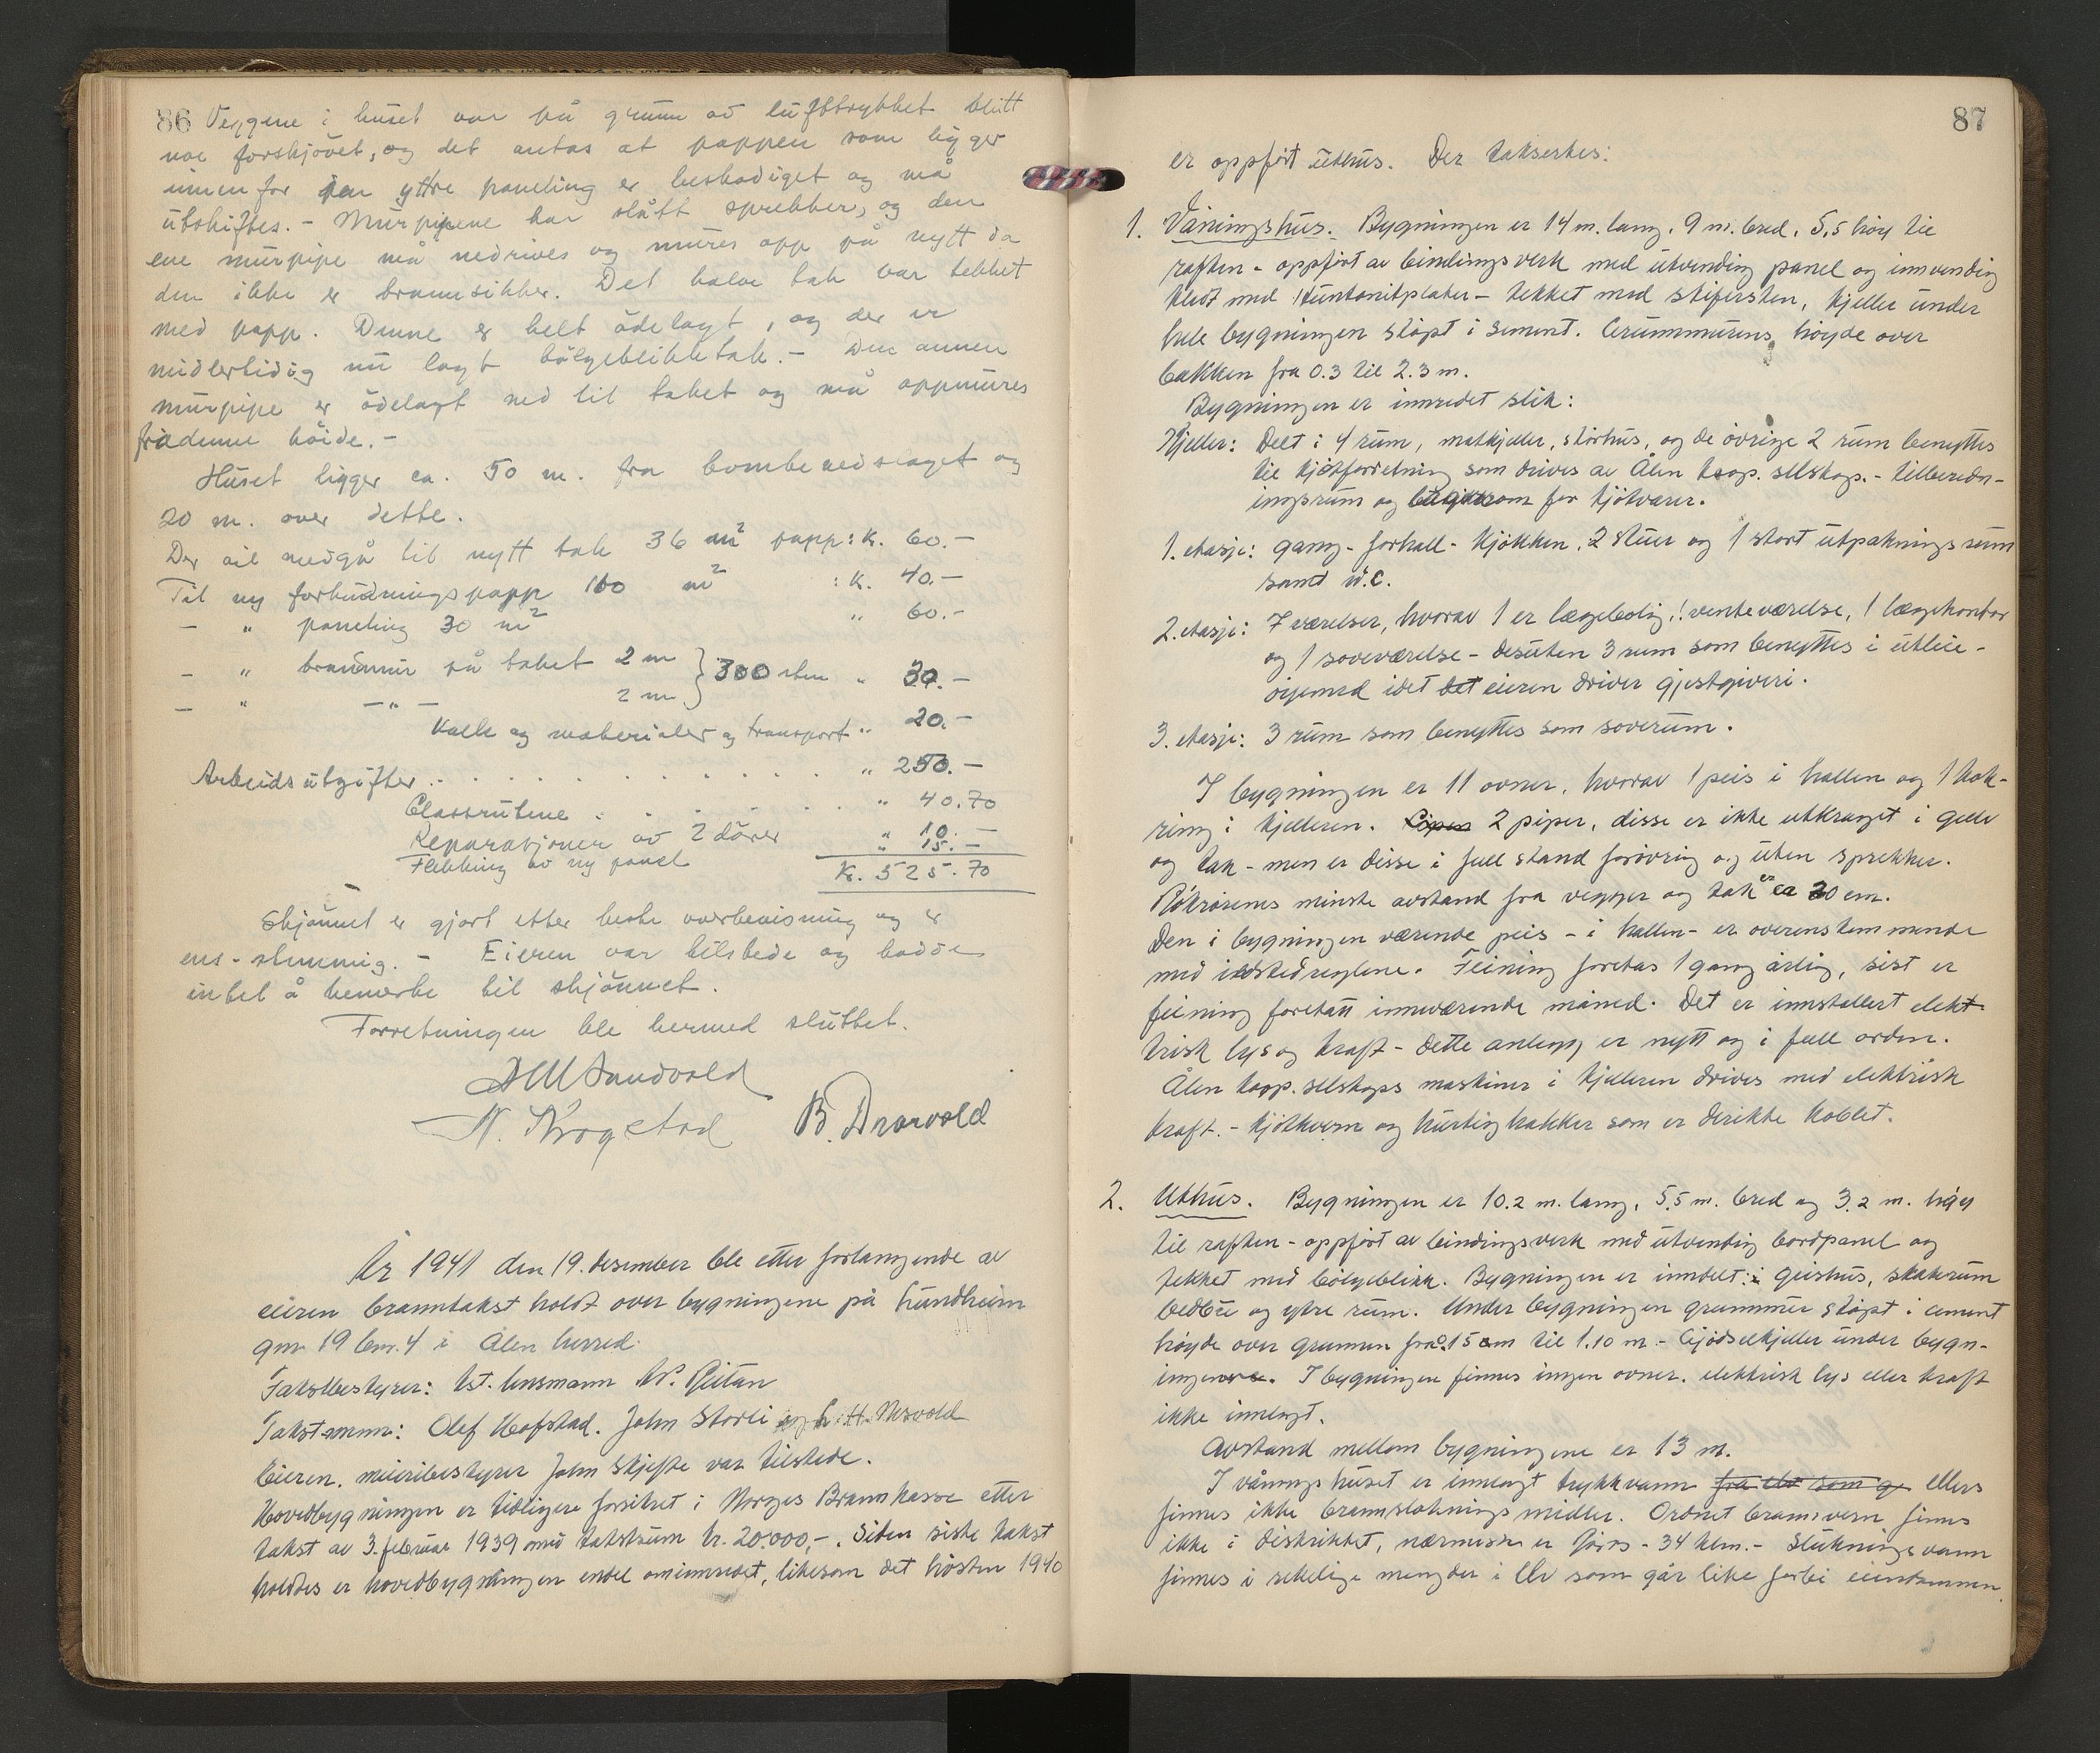 86 Veggene i huset var på grunn av lufttrykket blitt
noe forskjövet, og det antas at pappen som ligger
innenfor den yttre paneling er beskadiget og må
utskiftes. - Murpipene har slått sprekker, og den
ene murpipe må nedrives og mures opp på nytt da
den ikke er brannsikker. Det halve tak var tekket
med papp. Denne er helt ödelagt, og der er
midlertidig nu lagt bölgeblikktak. - Den annen
murpipe er ödelagt ned til taket og må oppmures
fra denne höide. -
Huset ligger ca. 50 m. fra bombenedslaget og
20 m. over dette.
Der vil medgå til nytt tak 36 m² papp: K. 60.-
Til ny forhudningspapp 100 m² : K. 40.-
- " paneling 30 m² " 60.-
- " brannmur på taket 2 m } 300 sten " 30.-
- " - " - 2 m
Kalk og materialer og transport " 20.-
Arbeidsutgifter . . . . . . . . . . " 250.-
Glassrutene . . . . . " 40.70
Reparasjoner av 2 dörer " 10.-
Flekking av ny panel " 15.-
Kr. 525.70
Skjönnet er gjort etter beste overbevisning og er
ens-stemmig. - Eieren var tilstede og hadde
intet å bemerke til skjönnet.
Forretningen ble hermed sluttet.
Sandvold
N. Krogstad B. Drarvold
År 1941 den 19. desember ble etter forlangende av
eieren branntakst holdt over bygningene på Lundheim
gnr 19 bnr. 4 i Ålen herred.
Takstbestyrer: kst. lensmann N. Reitan
Takstmenn: Olef Hofstad. John Storli og H. Nesvold
Eieren. meieribestyrer John Skjefte var tilstede.
Hovedbygningen er tidligere forsikret i Norges Brannkasse etter
takst av 3. februar 1939 med takstsum kr. 20.000,-. Siden siste takst
holdtes er hovedbygningen endel ominnredet, likesom det hösten 1940
87
er oppfört uthus. Der takseres:
1. Våningshus. Bygningen er 14 m. lang, 9 m. bred, 5,5 höy til
raften - oppfört av bindingsverk med utvendig panel og innvendig
kledt med huntonitplater - tekket med skifersten, kjeller under
hele bygningen stöpt i sement. Grunnmurens höyde over
bakken fra 0.3 til 2.3 m.
Bygningen er innredet slik:
Kjeller: Delt i 4 rum, matkjeller, störhus, og de övrige 2 rum benyttes
til kjöttforretning som drives av Ålen koop. selskap. - tilberedn-
ingsrum og for kjötvarer.
1. etasje: gang - forhall - kjökken, 2 stuer og 1 stort utpakningsrum
samt w.c.
2. etasje: 7 værelser, hvorav 1 er lægebolig, 1 venteværelse, 1 lægekontor
og 1 soveværelse - desuten 3 rum som benyttes i utleie-
öiemed idet det eieren driver gjestgiveri.
3. etasje: 3 rum som benyttes som soverum.
I bygningen er 11 ovner, hvorav 1 peis i hallen og 1 kok-
ring i kjelleren. 2 piper, disse er ikke utkraget i gulv
og tak - men er disse i full stand forövrig og uten sprekker.
Rökrörenes minste avstand fra vegger og tak er ca 20 cm.
Den i bygningen værende peis - i hallen - er overenstemmende
med ildstedreglene. Feining foretas 1 gang årlig, sist er
feining foretatt inneværende måned. Det er innstallert elekt-
trisk lys og kraft - dette anlegg er nytt og i full orden.
Ålen koop. selskaps maskiner i kjelleren drives med elektrisk
kraft. - kjötkvern og hurtighakker som er direkte koblet.
2. Uthus. Bygningen er 10.2 m. lang, 5.5 m. bred og 3.2 m. höy
til raften - oppfört av bindingsverk med utvendig bordpanel og
tekket med bölgeblikk. Bygningen er inndelt: i grishus, skakerum
vedbu og ytre rum. Under bygningen grunnmur stöpt i cement
höyde over grunnen fra 0.15 cm til 1.10 m. - Gjödselkjeller under bygn-
ingen. I bygningen finnes ingen ovner. elektrisk lys eller kraft
ikke innlagt.
Avstand mellom bygningene er 13 m.
I våningshuset er innlagt trykkvann fra elv som g ellers
finnes ikke brannslokningsmidler. Ordnet brannvern finnes
ikke i distriktet, nærmeste er Röros - 34 klm. - Slukningsvann
finnes i rikelige mengder i elv som går like forbi eiendommen.